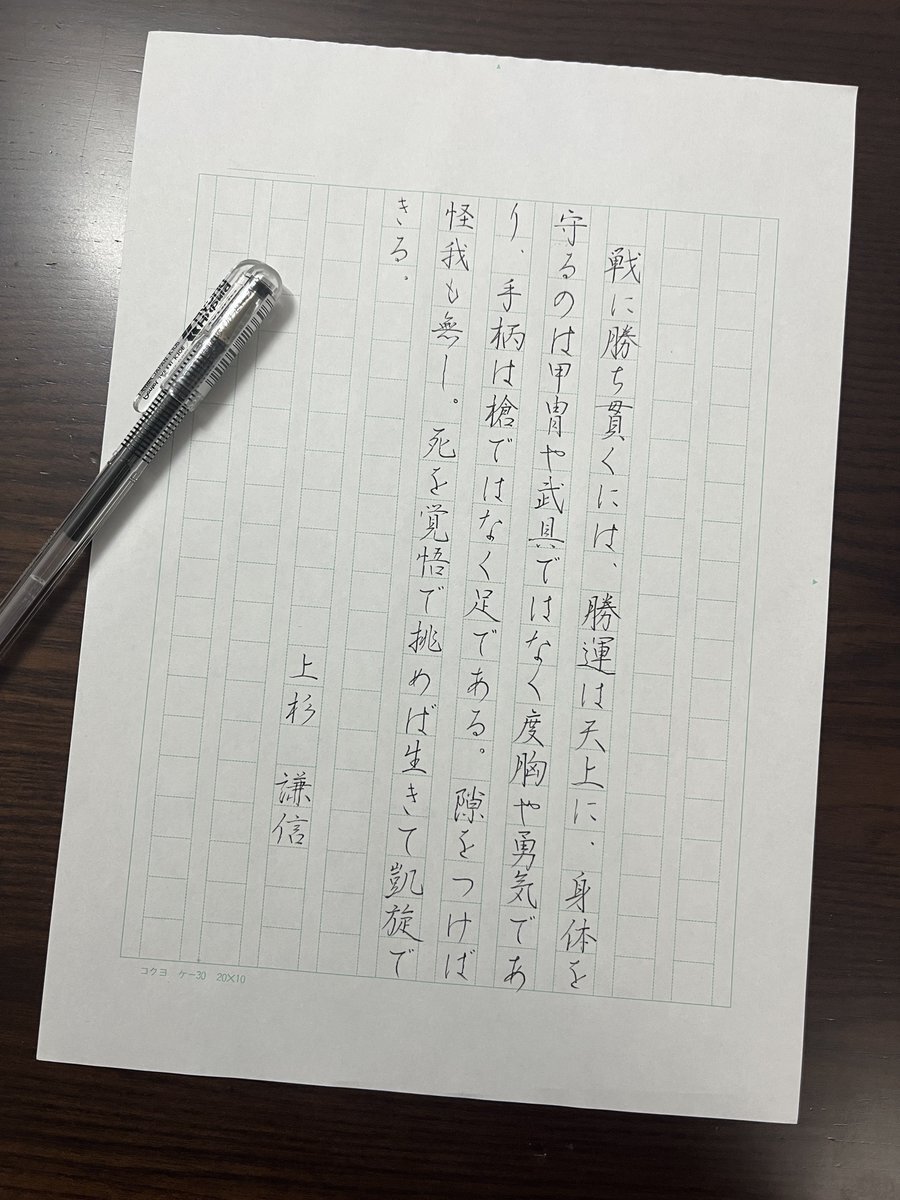 戦に勝ち貫くには、勝運は天上に、身体を
守るのは甲冑や武具ではなく度胸や勇気であ
り、手柄は槍ではなく足である。隙をつけば
怪我も無し。死を覚悟で挑めば生きて凱旋で
きる。
上杉 謙信
コクヨ ケー30 20×10